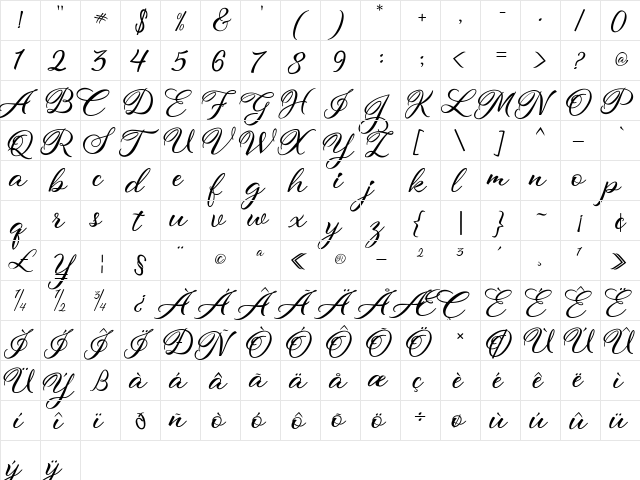 ! " # $ % & ' ( ) * + , - . / 0
1 2 3 4 5 6 7 8 9 : ; < = > ? @
A B C D E F G H I J K L M N O P
Q R S T U V W X Y Z [ \ ] ^ _ `
a b c d e f g h i j k l m n o p
q r s t u v w x y z { | } ~ ¡ ¢
£ ¥ ¦ § ¨ © ª « ® ¯ ° ² ³ ´ ¸ ¹ »
¼ ½ ¾ ¿ À Á Â Ã Ä Å Æ Ç È É Ê Ë
Ì Í Î Ï Ð Ñ Ò Ó Ô Õ Ö × Ø Ù Ú Û
Ü Ý ß à á â ã ä å æ ç è é ê ë ì
í î ï ð ñ ò ó ô õ ö ÷ ø ù ú û ü
ý ÿ